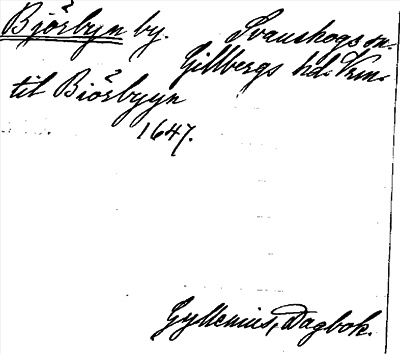 Björbyn by. Svanskogs sn.
Gillbergs hd. Vrm.
til Biörbyyn
1647.
Gyllenius, Dagbok.